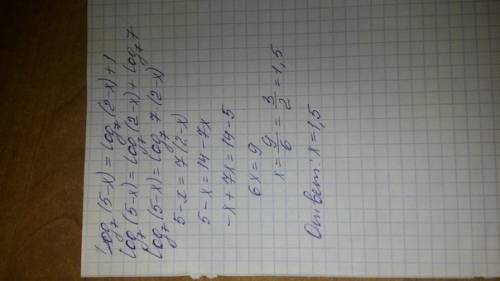 log₇(5-x) = log₇(2-x)+1
log₇(5-x)=log₇(2-x)+log₇7
log₇(5-x)=log₇7·(2-x)
5-x=7(2-x)
5-x=14-7x
-x+7x=14-5
6x=9
x=9/6=3/2=1,5
Ответ: x=1,5